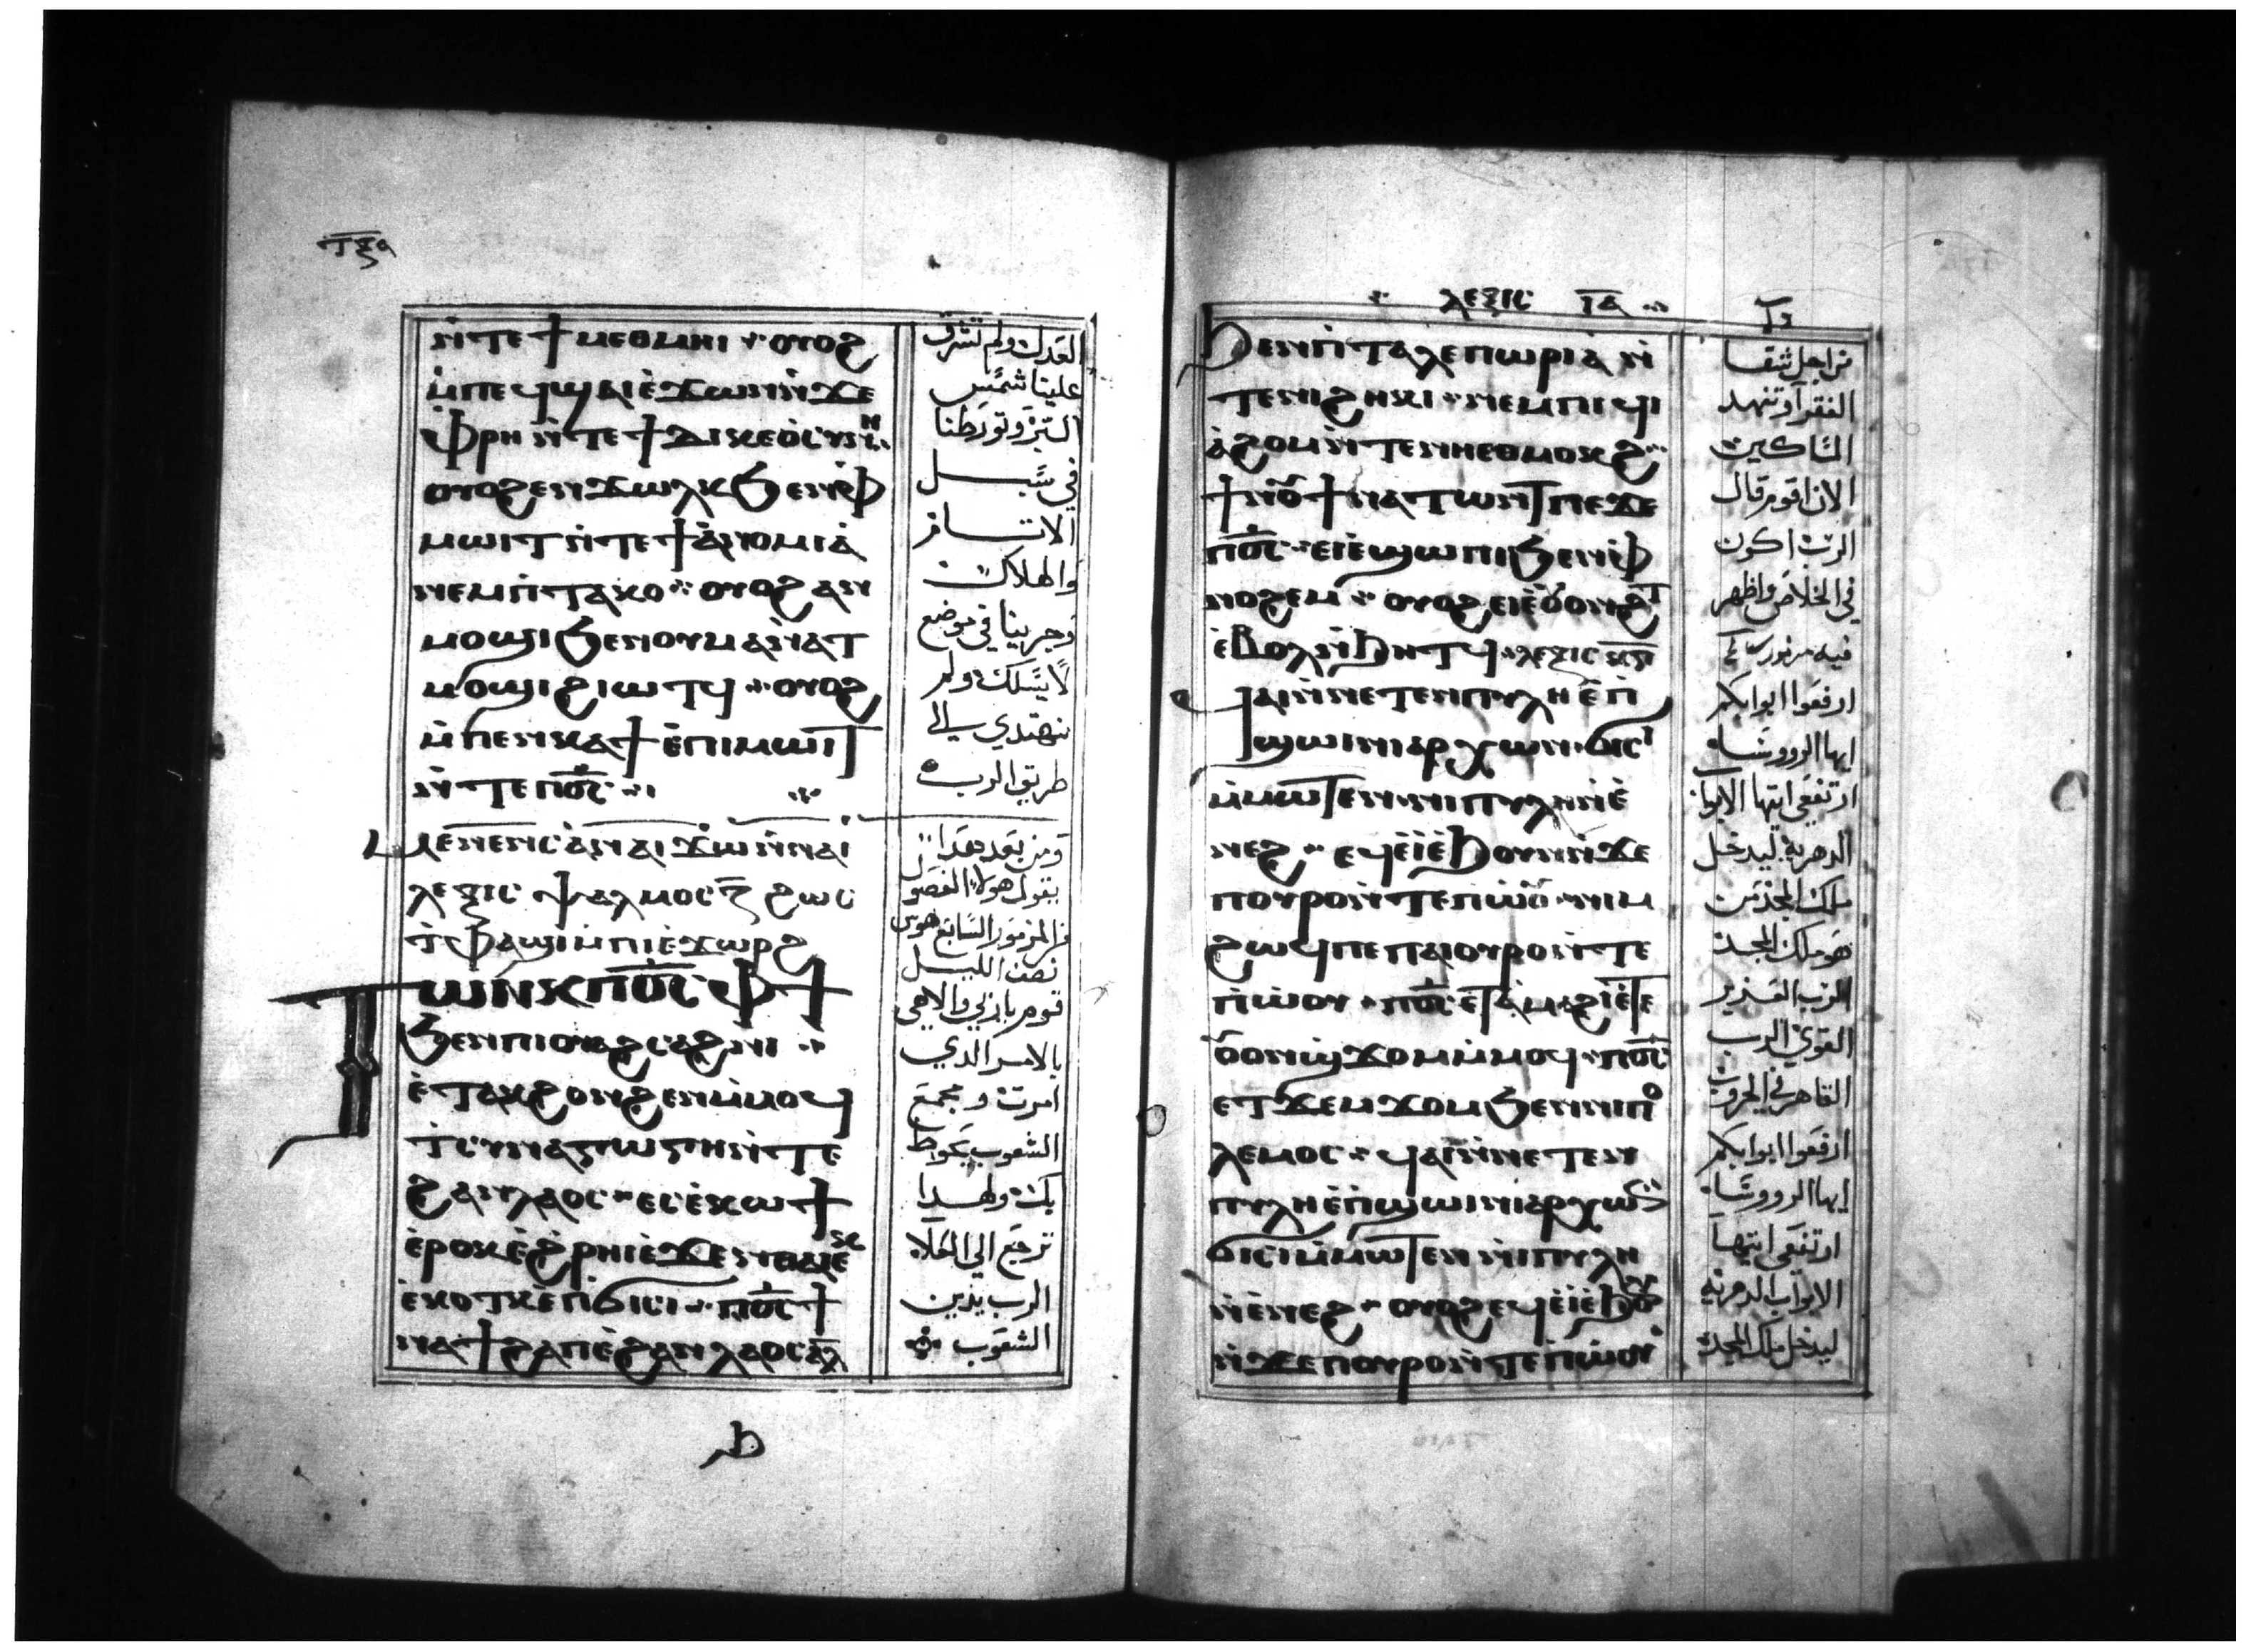 ⲧⲝⲁ
ⲛ̀ⲧⲉ ϯⲙⲉⲑⲙⲏⲓ ⲟⲩⲟϩ
ⲙ̀ⲡⲉϥϣⲁⲓ ⲉ̀ϫⲱⲛ ⲛ̀ϫⲉ
ⲫⲣⲏ ⲛ̀ⲧⲉ ϯⲇⲓⲕⲉⲟ̀ⲥⲩⲛⲏ
ⲟⲩⲟϩ ⲉⲛϫⲱⲗⲕ ϧⲉⲛ ⲫ
ⲙⲱⲓⲧ ⲛ̀ⲧⲉ ϯⲁ̀ⲛⲟⲙⲓⲁ̀
ⲛⲉⲙ ⲡ̀ⲧⲁⲕⲟ ⲟⲩⲟϩ ⲁⲛ
ⲙⲟϣⲓ ϧⲉⲛ ⲟⲩⲙⲁ ⲛ̀ⲁⲧ
ⲙⲟϣⲓ ϩⲓⲱⲧϥ ⲟⲩⲟϩ
ⲙ̀ⲡⲉⲛⲕⲁϯ ⲉ̀ⲡⲓⲙⲱⲓⲧ
ⲛ̀ⲧⲉ ⲡⲟ̅ⲥ̅
ⲙⲉⲛⲉⲛⲥⲁ̀ ⲛⲁⲓ ϫⲱ ⲛ̀ⲛⲁⲓ
ⲗⲉⲝⲓⲥ ⲯⲁⲗⲙⲟⲥ ⲍ̅ ϩⲱⲥ
ⲧ̀ⲫⲁϣⲓ ⲙ̀ⲡⲓⲉ̀ϫⲱⲣϩ
ⲧⲱⲛⲕ ⲡⲟ̅ⲥ̅ ⲫϯ
ϧⲉⲛ ⲡⲓⲟⲩⲁϩⲥⲁϩⲛⲓ
ⲉ̀ⲧⲁⲕϩⲟⲛϩⲉⲛ ⲙ̀ⲙⲟϥ
ⲧ̀ⲥⲩⲛⲁⲅⲱⲅⲏ ⲛ̀ⲧⲉ
ϩⲁⲛⲗⲁⲟⲥ ⲉⲥⲉ̀ⲕⲱϯ
ⲉ̀ⲣⲟⲕ ⲉ̀ϩ̀ⲣⲏⲓ ⲉ̀ϫⲉⲛ ⲑⲁⲓ ⲉⲕ
ⲉ̀ⲕⲟⲧⲕ ⲉ̀ⲡ̀ϭⲓⲥⲓ ⲡⲟ̅ⲥ̅ ϯ
ⲛⲁϯϩⲁⲡ ⲉ̀ϩⲁⲛⲗⲁⲟⲥ ⲁ̅ⲗ̅
العدل ولم تشرق
علينا شمس
البر وتورطنا
في سبل
الاثام
والهلاك
وجرينا في موضع
لا يسلك ولم
نهتدي الى
طريق الرب
ومن بعد هدا
يقول هولاء الفصول
من المزمور السابع هوس
نصف الليل
قوم ياربي والاهي
بالامر الدي
امرت ومجمع
الشعوب يحوط
بك ولهدا
ترجع الي العلا
الرب يدين
الشعوب
ⲗⲉⲝⲓⲥ ⲓ̅ⲁ̅
ϧⲉⲛ ⲡ̀ⲧⲁⲗⲉⲡⲱⲣⲓⲁ̀ ⲛ̀
ⲧⲉ ⲛⲓϩⲏⲕⲓ ⲛⲉⲙ ⲡⲓϥⲓ
ⲁ̀ϩⲟⲙ ⲛ̀ⲧⲉ ⲛⲏⲉⲑⲙⲟⲕϩ
ϯⲛⲟⲩ ϯⲛⲁⲧⲱⲛⲧ ⲡⲉϫⲉ
ⲡⲟ̅ⲥ̅ ⲉⲓⲉ̀ϣⲱⲡⲓ ϧⲉⲛ ⲫ
ⲛⲟϩⲉⲙ ⲟⲩⲟϩ ⲉⲓⲉ̀ⲟⲩⲟⲛϩⲧ
ⲉ̀ⲃⲟⲗ ⲛ̀ϧⲏⲧϥ ⲗⲉⲝⲓⲥ ⲕ̅ⲅ̅
ϥⲁⲓ ⲛ̀ⲛⲉⲧⲉⲛⲡⲩⲗⲏ ⲉ̀ⲡ̀
ϣⲱⲓ ⲛⲓⲁⲣⲭⲱⲛ ϭⲓⲥⲓ
ⲙ̀ⲙⲱⲧⲉⲛ ⲛⲓⲡⲩⲗⲏ ⲛ̀ⲉ̀
ⲛⲉϩ ⲉϥⲉ̀ⲓ̀ ⲉ̀ϧⲟⲩⲛ ⲛ̀ϫⲉ
ⲡⲟⲩⲣⲟ ⲛ̀ⲧⲉ ⲡ̀ⲱ̀ⲟⲩ ⲛⲓⲙ
ϩⲱϥ ⲡⲉ ⲡⲁⲓⲟⲩⲣⲟ ⲛ̀ⲧⲉ
ⲡ̀ⲱ̀ⲟⲩ ⲡⲟ̅ⲥ̅ ⲉⲧⲁ̀ⲙⲁϩⲓ ⲉ̀ⲧⲉ
ⲟⲩⲟⲛϣϫⲟⲙ ⲙ̀ⲙⲟϥ ⲡⲟ̅ⲥ̅
ⲉⲧϫⲉⲙϫⲟⲙ ϧⲉⲛ ⲛⲓⲡⲟ
ⲗⲉⲙⲟⲥ ϥⲁⲓ ⲛ̀ⲛⲉⲧⲉⲛ
ⲡⲩⲗⲏ ⲉ̀ⲡ̀ϣⲱⲓ ⲛⲓⲁⲣⲭⲱⲛ
ϭⲓⲥⲓ ⲙ̀ⲙⲱⲧⲉⲛ ⲛⲓⲡⲩⲗⲏ
ⲛ̀ⲉ̀ⲛⲉϩ ⲟⲩⲟϩ ⲉϥⲉ̀ⲓ̀ ⲉ̀ϧⲟⲩⲛ
ⲛ̀ϫⲉ ⲡⲟⲩⲣⲟ ⲛ̀ⲧⲉ ⲡ̀ⲱ̀ⲟⲩ
من اجل شقا
الفقرآ وتنهد
المساكين
الان اقوم قال
الرب اكون
في الخلاص واظهر
فيه مزمور
ارفعوا ابوابكم
ايها الرووسا
ارتفعي ايتها الابواب
الدهرية ليدخل
ملك المجد من
هو ملك المجد
الرب العزيز
القوي الرب
القاهر في الحروب
ارفعوا ابوابكم
ايها الرووسا
ارتفعي ايتها
الابواب الدهرية
ليدخل ملك المجد